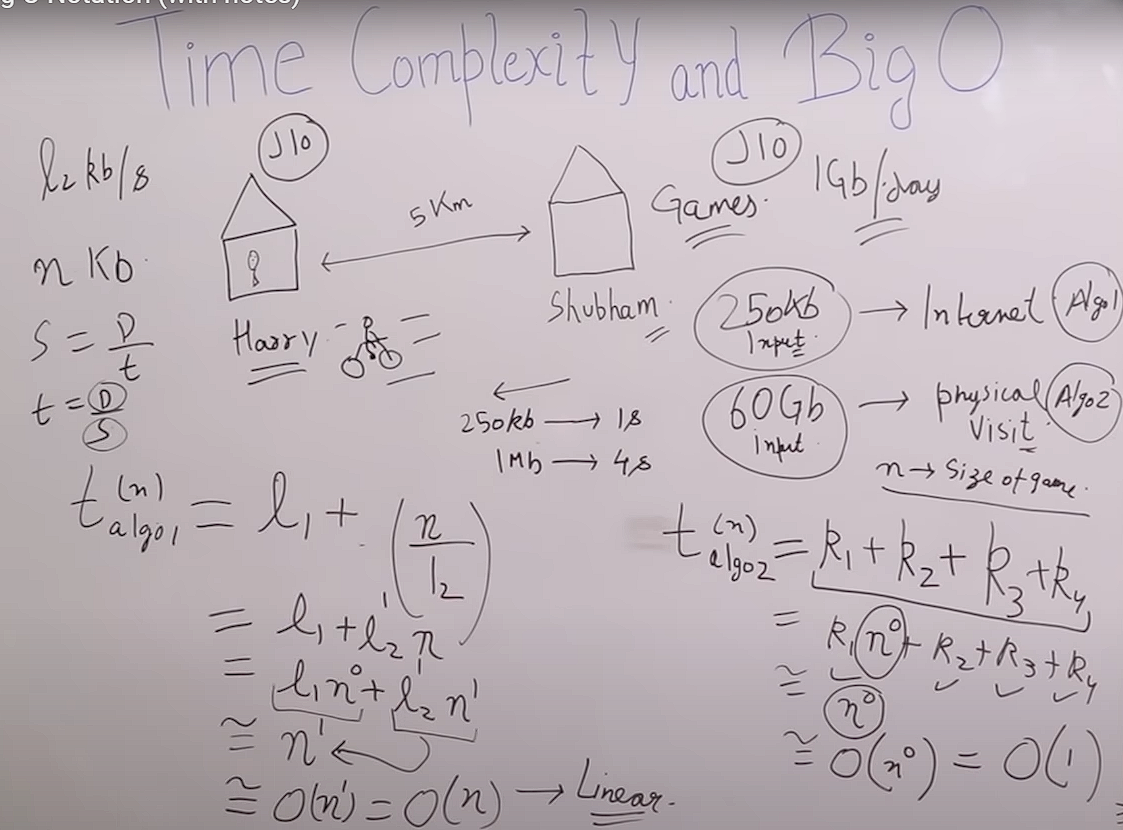 Time Complexity and Big O
l₂ kb/s
n Kb
S = D/t
t = D/S
J10
5 Km
Harry
Shubham
J10
1Gb/day
Games
250kb Input → Internet Algo1
60Gb input → physical Visit Algo2
n → Size of game
250kb → 1s
1Mb → 4s
t algo1 (n) = l₁ + (n/l₂)
= l₁ + l₂' n
= l₁n⁰ + l₂' n¹
≅ n¹
≅ O(n¹) = O(n) → Linear
t algo2 (n) = k₁ + k₂ + k₃ + k₄
= k₁n⁰ + k₂ + k₃ + k₄
≅ n⁰
≅ O(n⁰) = O(1)